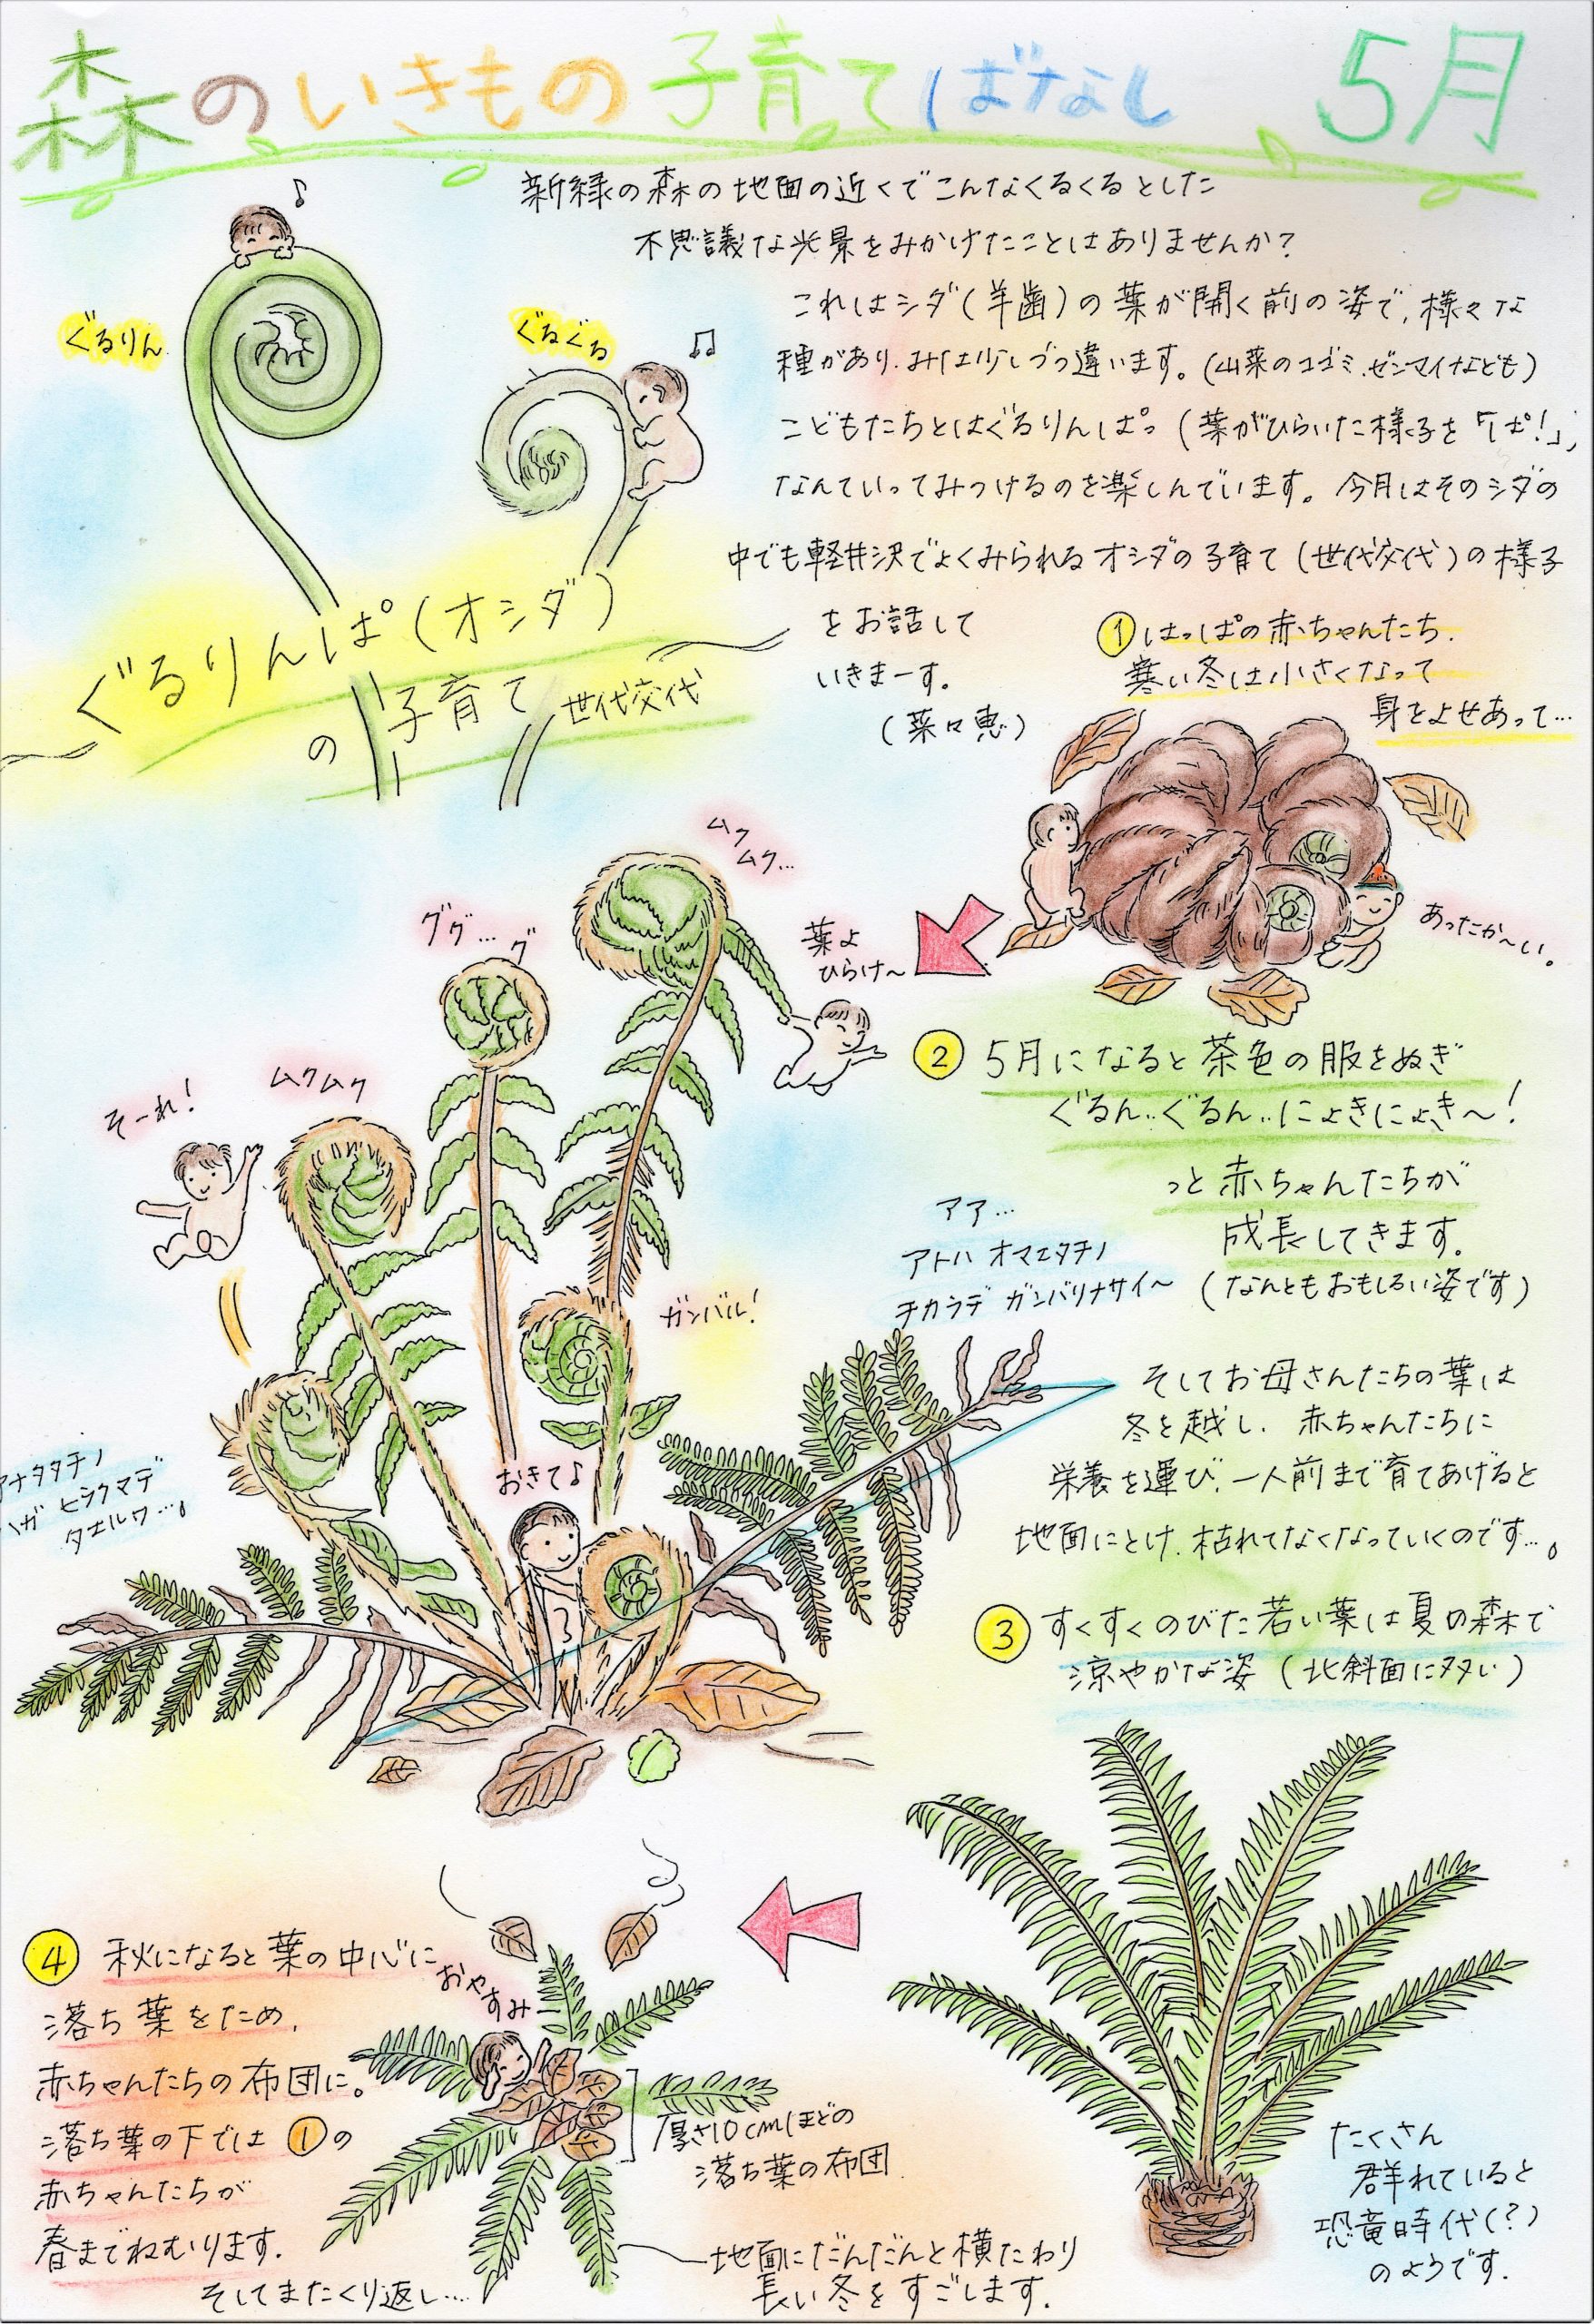 森のいきもの子育てばなし 5月
新緑の森の地面の近くでこんなくるくるとした
不思議な光景をみかけたことはありませんか?
これはシダ(羊歯)の葉が開く前の姿で、様々な
種があり、みな少しづつ違います。(山菜のコゴミ、ゼンマイなども)
こどもたちとはぐるりんぱっ(葉がひらいた様子を「ぱ!」)
なんていってみつけるのを楽しんでいます。今月はそのシダの
中でも軽井沢でよくみられるオシダの子育て(世代交代)の様子
をお話して
いきまーす。
(菜々恵)
♪
ぐるりん
ぐるぐる
♫
ぐるりんぱ(オシダ)
の子育て 世代交代
①はっぱの赤ちゃんたち、
寒い冬は小さくなって
身をよせあって…
あったか〜い。
ムク
ムク…
ググ…グ
葉よ
ひらけ〜
ムクムク
そーれ!
② 5月になると茶色の服をぬぎ
ぐるん‥ぐるん‥にょきにょき〜!
っと赤ちゃんたちが
成長してきます。
(なんともおもしろい姿です)
アア…
アトハ オマエタチノ
チカラデ ガンバリナサイ〜
ガンバル!
おきて♪
アナタタチノ
ハガ ヒラクマデ
タエルワ…。
そしてお母さんたちの葉は
冬を越し、赤ちゃんたちに
栄養を運び、一人前まで育てあげると
地面にとけ、枯れてなくなっていくのです…。
③ すくすくのびた若い葉は夏の森で
涼やかな姿(北斜面に多い)
たくさん
群れていると
恐竜時代(?)
のようです。
④ 秋になると葉の中心に
落ち葉をため、
赤ちゃんたちの布団に。
落ち葉の下では①の
赤ちゃんたちが
春までねむります。
そしてまたくり返し…
おやすみ
厚さ10cmほどの
落ち葉の布団
地面にだんだんと横たわり
長い冬をすごします。